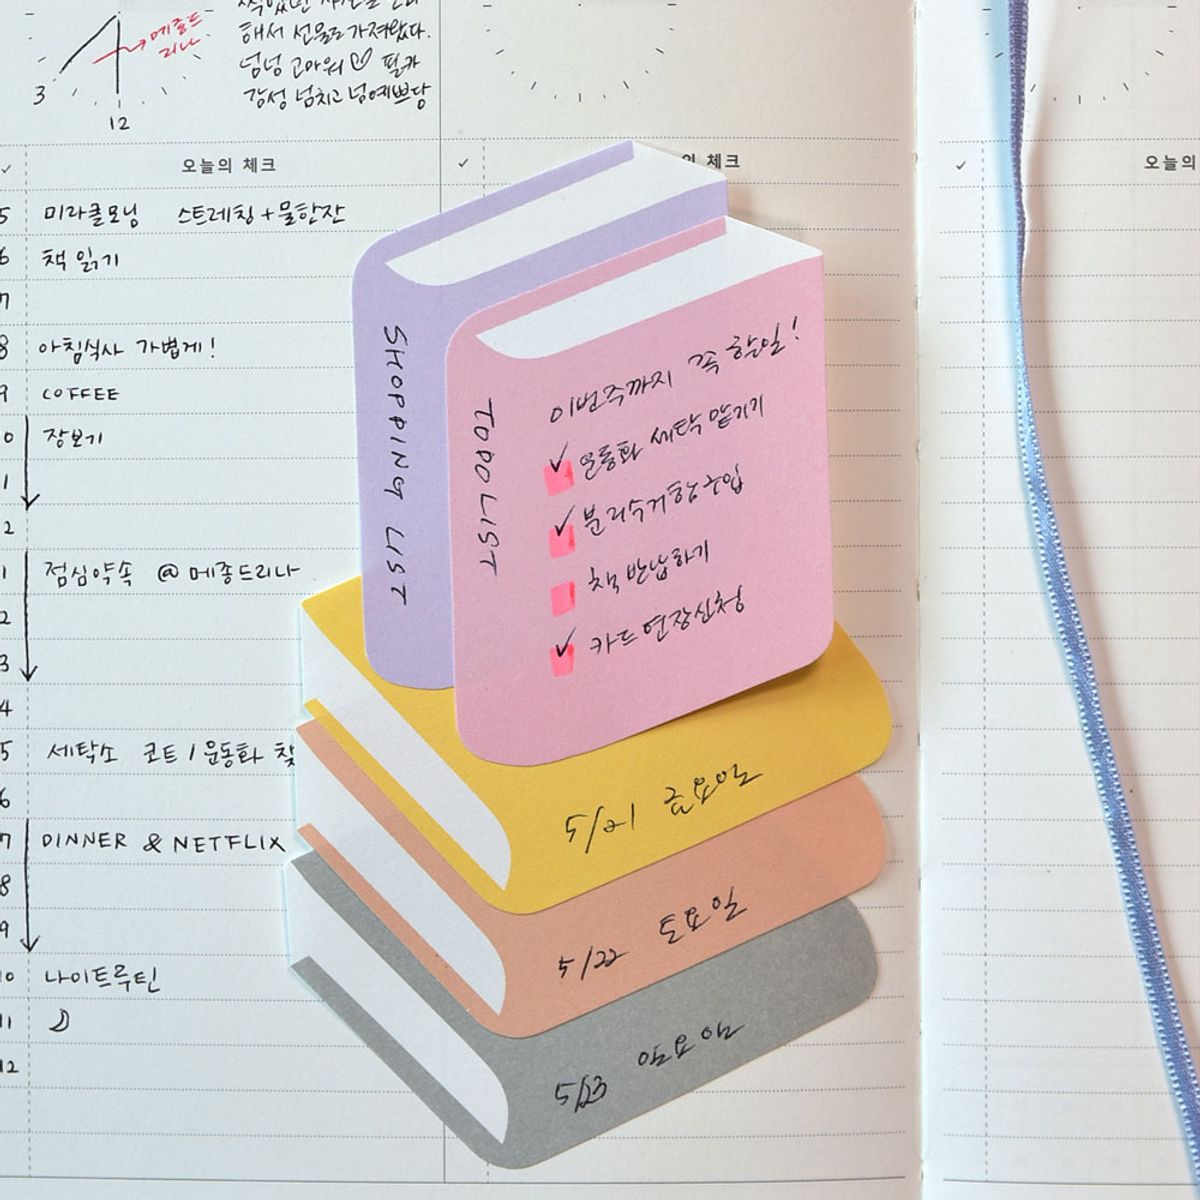 메종드
리나
해서 선물로 가져왔다.
넘넘 고마워♡ 필카
감성 넘치고 넘예쁘당
3
12
✓ 오늘의 체크
✓ 의 체크
✓ 오늘의
5 미라클모닝 스트레칭+물한잔
6 책 읽기
7
8 아침식사 가볍게!
9 COFFEE
0 장보기
1
2
1 점심약속 @ 메종드리나
2
3
4
5 세탁소 코트/운동화 찾
6
7 DINNER & NETFLIX
8
9
10 나이트루틴
11
12
SHOPPING LIST
TODO LIST
이번주까지 꼭 할일!
✓ 운동화 세탁 맡기기
✓ 분리수거함 구입
책 반납하기
✓ 카드 연장신청
5/21 금요일
5/22 토요일
5/23 일요일